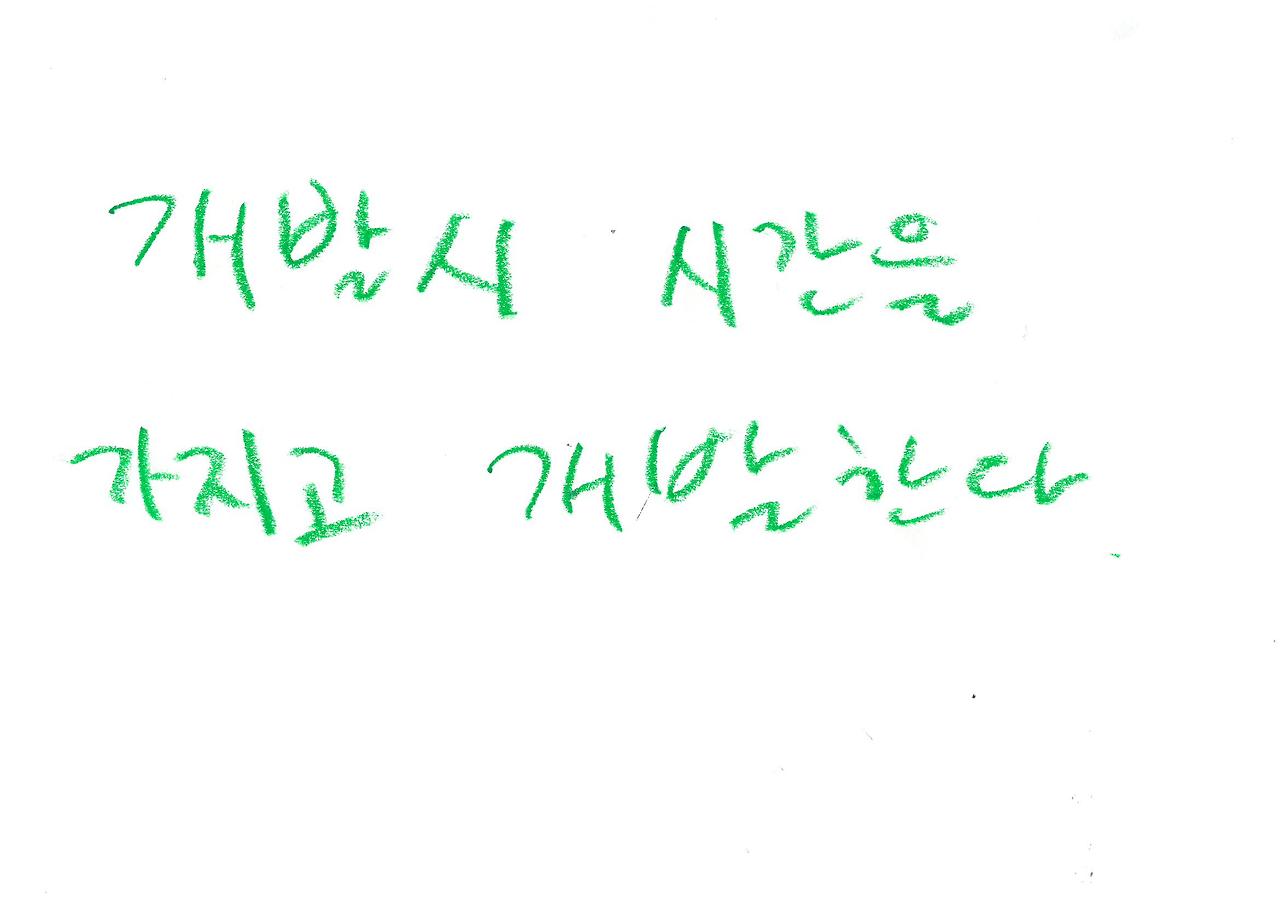 개발시 시간을
가지고 개발한다